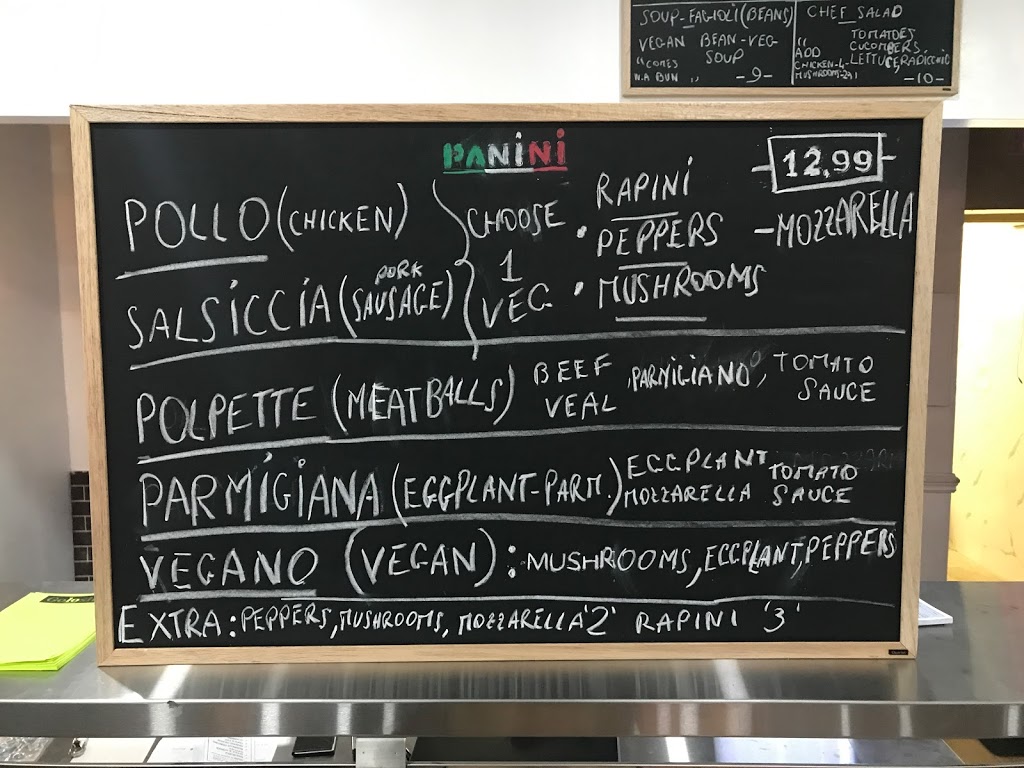 SOUP-FAGIOLI(BEANS)
VEGAN BEAN-VEG
SOUP
"COMES
W.A BUN " -9-
CHEF SALAD
" TOMATOES
ADD CUCOMBERS,
CHICKEN-4- LETTUCE,RADICCHIO
MUSHROOM-2 -10-
PANINI
12.99
POLLO (CHICKEN)
SALSICCIA (PORK SAUSAGE)
CHOOSE
1
VEG
RAPINI
• PEPPERS
• MUSHROOMS
-MOZZARELLA
POLPETTE (MEATBALLS) BEEF VEAL, PARMIGIANO, TOMATO SAUCE
PARMIGIANA (EGGPLANT-PARM.) EGGPLANT TOMATO
MOZZARELLA SAUCE
VEGANO (VEGAN): MUSHROOMS, EGGPLANT, PEPPERS
EXTRA: PEPPERS, MUSHROOMS, MOZZARELLA '2' RAPINI '3'